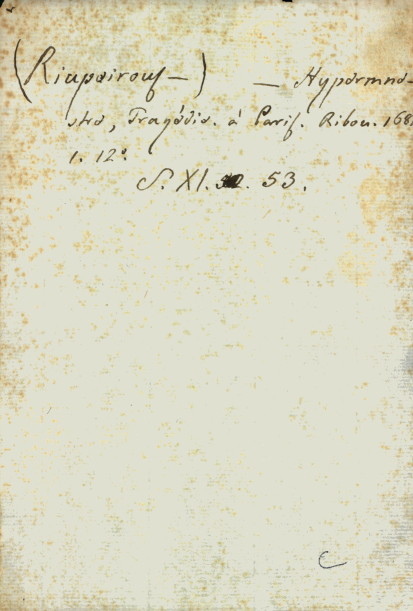 (Riupeirouſ —) — Hypermne-
stre, Tragédie. á Pariſ. Ribou. 168
1. 12°.
S. XI. 53.
C